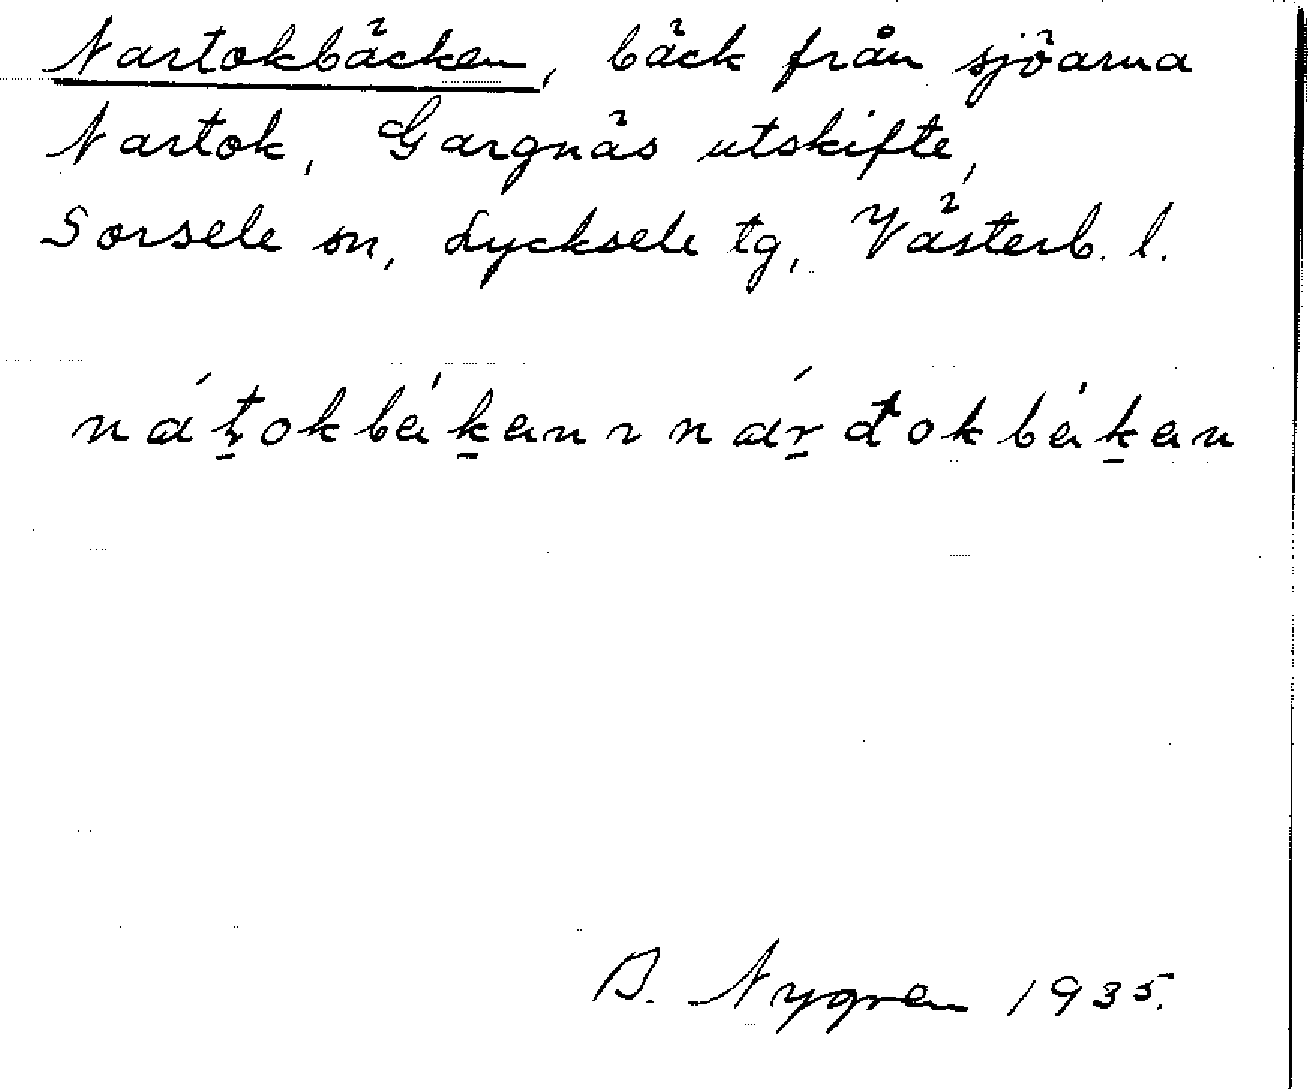 Nartokbäcken, bäck från sjöarna
Nartok, Gargnäs utskifte,
Sorsele sn, Lycksele tg, Västerb. l.
B. Nygren 1935.